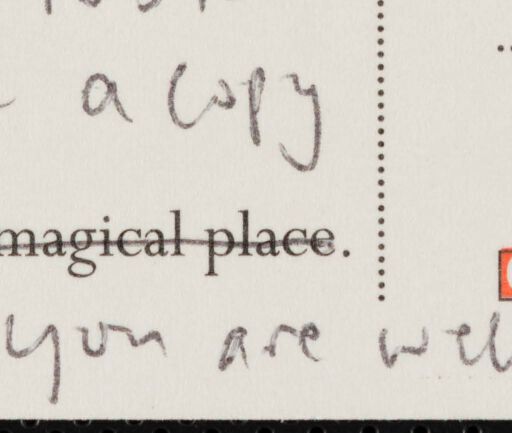 a copy
magical place.
you are